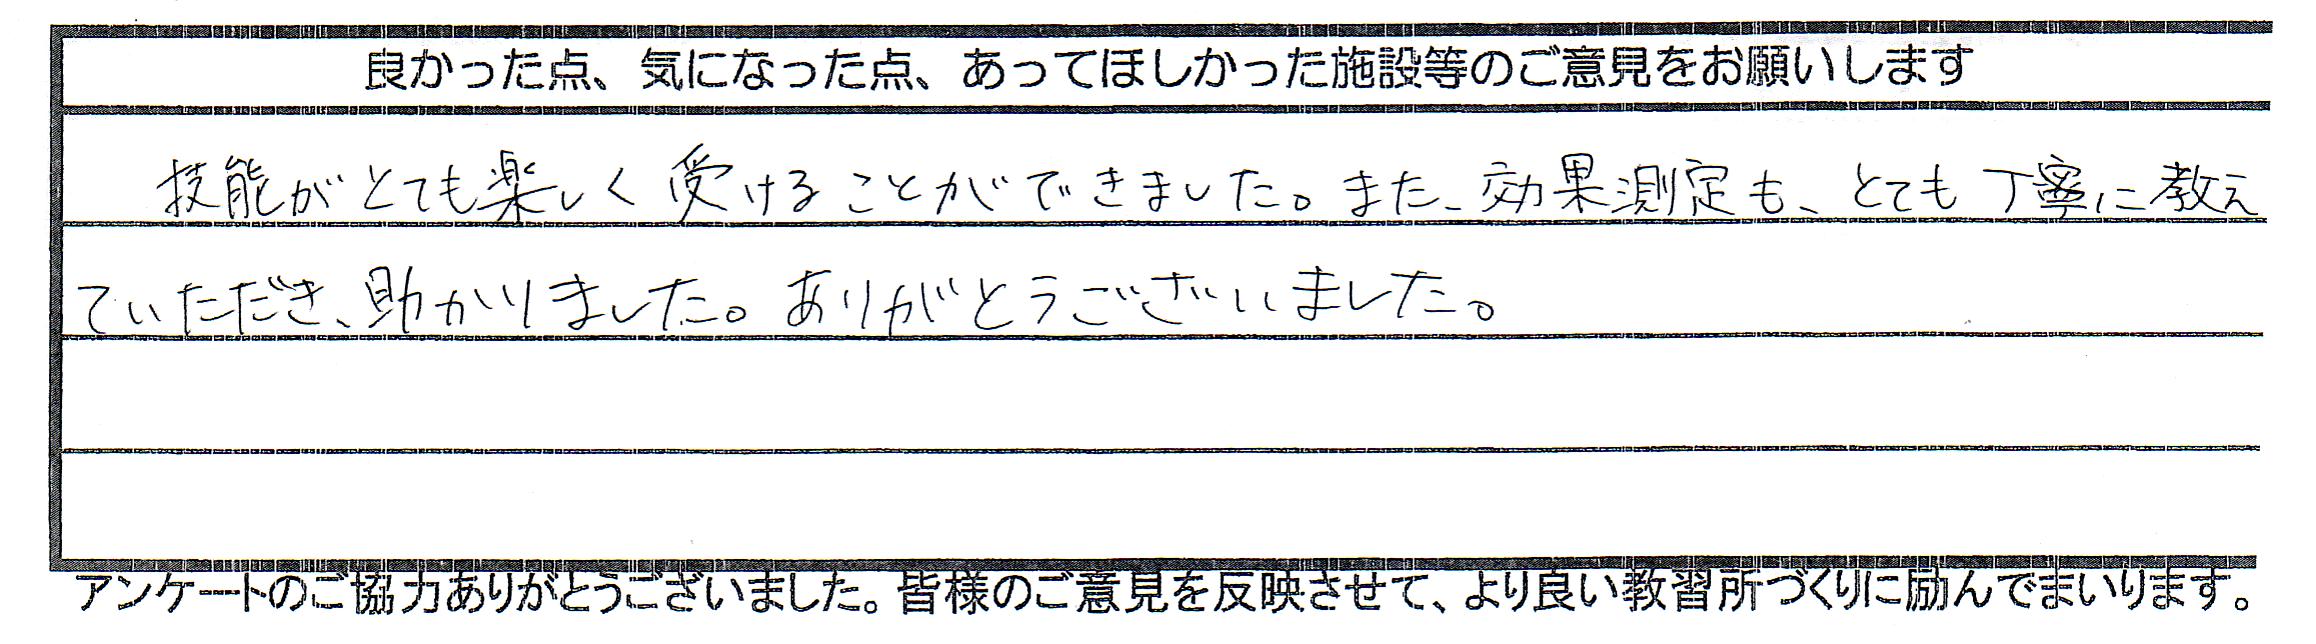 良かった点、気になった点、あってほしかった施設等のご意見をお願いします
技能がとても楽しく受けることができました。また、効果測定も、とても丁寧に教え
ていただき、助かりました。ありがとうございました。
アンケートのご協力ありがとうございました。皆様のご意見を反映させて、より良い教習所づくりに励んでまいります。